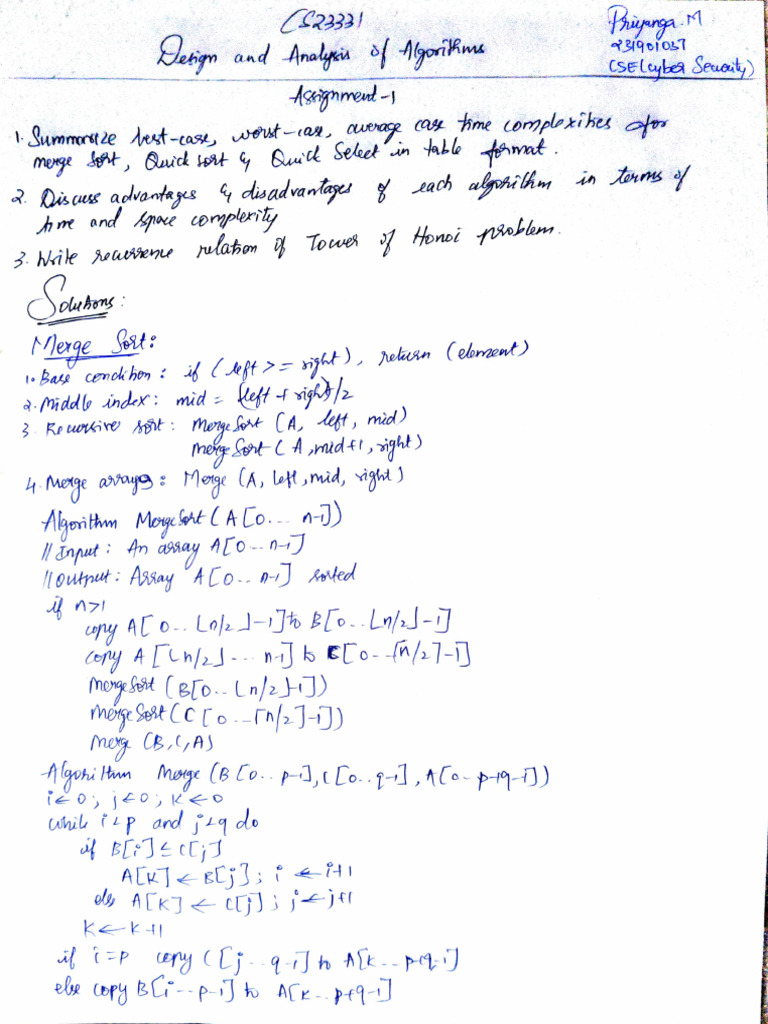 CS23331
Design and Analysis of Algorithms
Priyanga.M
231901037
CSE(Cyber Security)
Assignment-1
1. Summarize best-case, worst-case, average case time complexities for
merge sort, Quick sort & Quick Select in table format.
2. Discuss advantages & disadvantages of each algorithm in terms of
time and space complexity
3. Write recurrence relation of Tower of Honoi problem.
Solutions:
Merge Sort:
1. Base condition: if (left >= right), return (element)
2. Middle index: mid = (left + right)/2
3. Recursive sort: MergeSort (A, left, mid)
MergeSort (A, mid+1, right)
4. Merge arrays: Merge (A, left, mid, right)
Algorithm MergeSort (A[0... n-1])
//Input: An array A[0...n-1]
//Output: Array A[0...n-1] sorted
if n>1
copy A[0...⌊n/2⌋-1] to B[0...⌊n/2⌋-1]
copy A[⌊n/2⌋...n-1] to C[0...⌈n/2⌉-1]
MergeSort (B[0..⌊n/2⌋-1])
MergeSort (C[0...⌈n/2⌉-1])
Merge (B,C,A)
Algorithm Merge (B[0..p-1], C[0..q-1], A[0..p+q-1])
i←0; j←0; k←0
while i<p and j<q do
if B[i] ≤ C[j]
A[k] ← B[j]; i ← i+1
else A[k] ← C[j]; j ← j+1
k ← k+1
if i=p copy C[j...q-1] to A[k...p+q-1]
else copy B[i...p-1] to A[k...p+q-1]